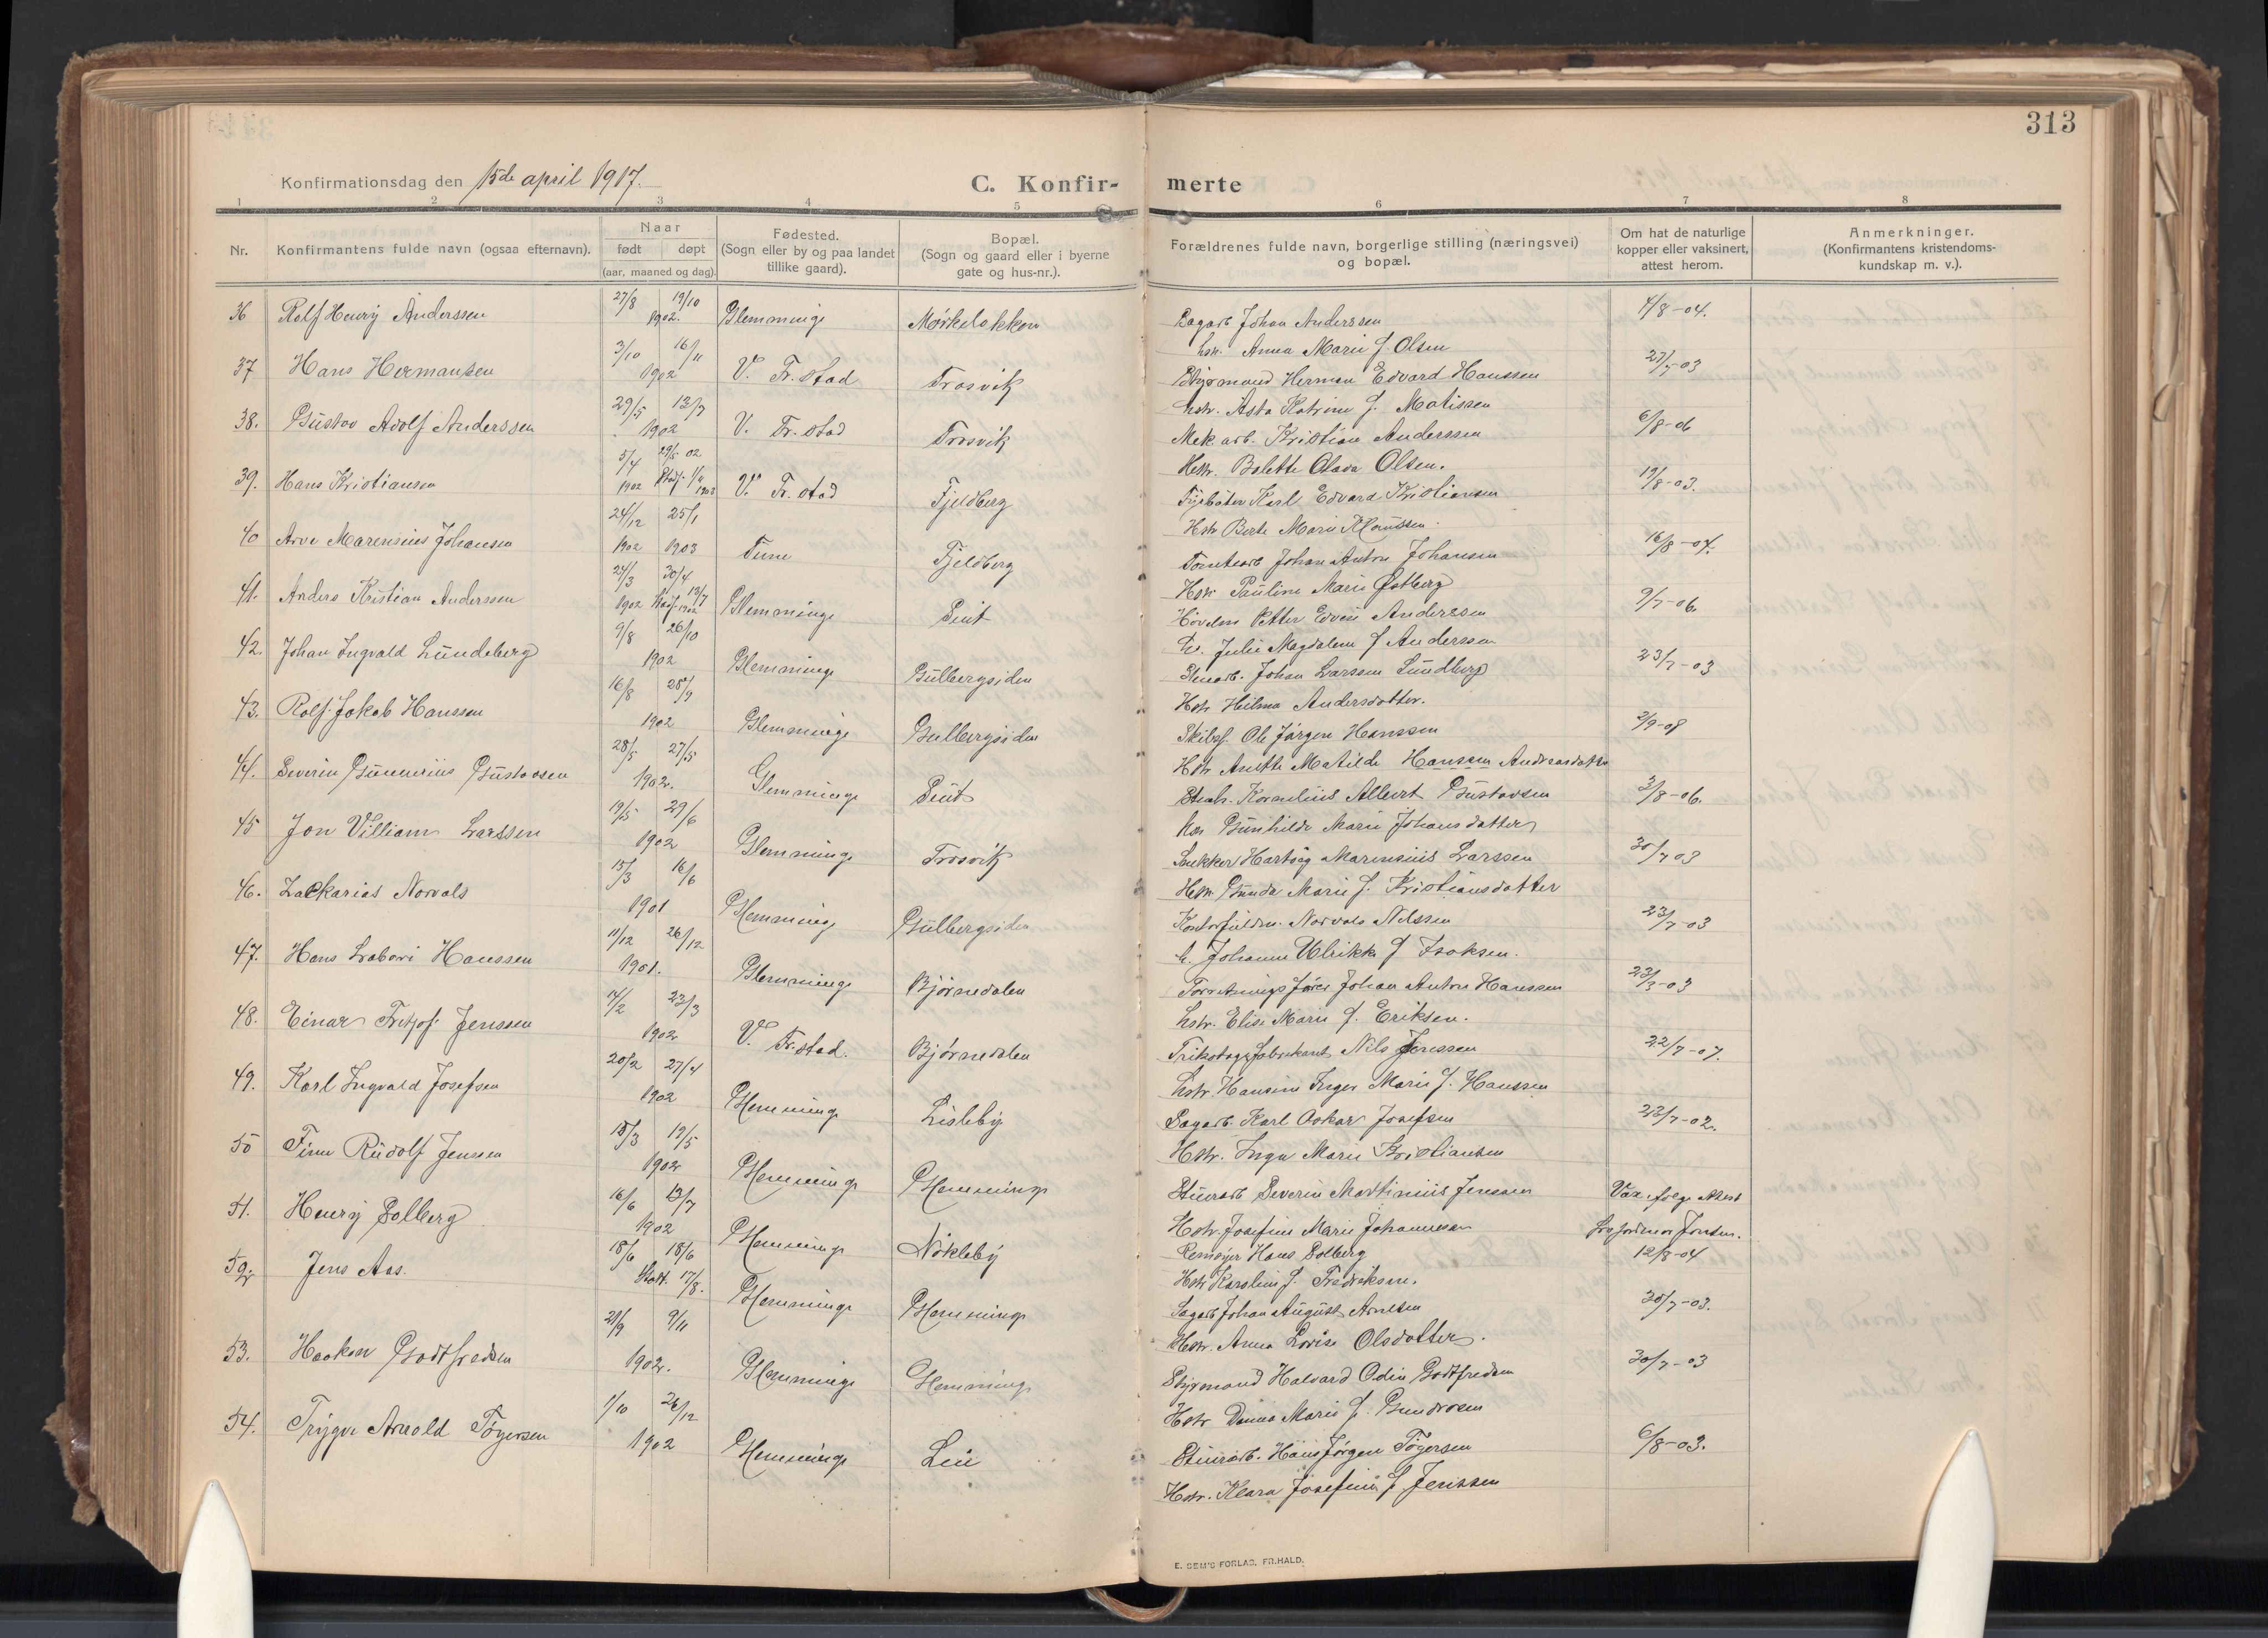 313
Konfirmationsdag den 15de april 1917.
C. Konfir-merte
1 2 3 4 5 6 7 8
Nr.
Konfirmantens fulde navn (ogsaa efternavn).
Naar
født døpt
(aar, maaned og dag).
Fødested.
(Sogn eller by og paa landet
tillike gaard).
Bopæl.
(Sogn og gaard eller i byerne
gate og hus-nr.).
Forældrenes fulde navn, borgerlige stilling (næringsvei)
og bopæl.
Om hat de naturlige
kopper eller vaksinert,
attest herom.
Anmerkninger.
(Konfirmantens kristendoms-
kundskap m. v.).
36 Rolf Henry Anderssen 27/8 19/10 1902. Glemminge Mørkeløkken Sagarb Johan Anderssen 4/8-04.
hstr. Anna Marie f. Olsen
37 Hans Hermansen 3/10 16/11 1902 V. Fr.stad Trosvik Styrmand Herman Edvard Hanssen 27/7-03
hstr. Asta Katrine f. Matissen
38. Gustav Adolf Anderssen 29/5 13/7 1902 V. Fr.stad Trosvik Mek. arb. Kristian Anderssen 6/8-06
Hstr. Bolette Olava Olsen.
39. Hans Kristiansen 5/4 1902 V. Fr.stad Fjeldberg Fyrbøter Karl Edvard Kristiansen 19/8-03.
Hstr Berte Marie
40 Arve Marensius Johansen 24/12 1902 25/1 1903 Tune Fjeldberg Tomtearb Johan Anton Johansen 16/8-04.
Hstr Pauline Marie Østberg
41. Anders Kristian Anderssen 24/3 1902 30/4 13/7 1902 Glemminge Seut Høvelm Petter Edvin Anderssen 9/7-06.
h. Julie Magdalene f Anderssen
42. Johan Ingvald Lundeberg 9/8 26/10 1902 Glemminge Gulbergsiden Stenarb. Johan Larssen Lundberg 23/7-03
Hstr Hilma Andersdatter.
43. Rolf Jakob Hanssen 16/8 28/9 1902 Glemminge Gulbergsiden Skibsf. Ole Jørgen Hanssen 2/9-08
Hstr Anette Matilde Hanssen Andreasdatter
44. Severin Gunnerius Gustavsen 28/5 27/5 1902. Glemminge Seut Stenh. Kornelius Albert Gustavsen 3/8-06.
hstr Gunhilde Marie Johansdatter
45 Jon Villiam Larssen 19/5 29/6 1902 Glemminge Trosvik Snekker Hartvig Marensius Larssen 30/7 03
Hstr. Gunda Marie f. Kristiansdatter
46. Zackarias Norvals 15/3 16/6 1901 Glemminge Gulbergsiden Kontorfuldm. Norvals Nilssen 23/7-03
h. Johanne Ulrikke f Isaksen.
47. Hans Hanssen 11/12 26/12 1901. Glemminge Bjørnedalen Forretningsfører Johan Anton Hanssen 23/3-03
hstr. Elise Marie f. Eriksen.
48. Einar Fritjof Jenssen 14/2 23/3 1902 V. Fr.stad. Bjørnedalen Trikotagefabrikant Nils Jenssen 22/7-07.
hstr. Hansine Inger Marie f. Hanssen
49. Karl Ingvald Josefsen 20/2 27/4 1902 Glemminge Lisleby Sagarb. Karl Oskar Josefsen 23/7-02.
Hstr. Inga Marie Kristiansen
50 Finn Rudolf Jenssen 15/3 19/5 1902 Glemminge Glemminge Stuerarb Severin Martinius Jenssen Vax. ifølge Attest
Hstr. Josefine Marie Johannessen
51. Henry Solberg 16/6 13/7 1902 Glemminge Nøkleby Hans Solberg 12/8-04
Hstr Karoline f. Fredriksen.
52 Jens Aas. 18/6 18/6 Stadf. 17/8. Glemminge Glemminge Sagarb Johan August Arnesen 30/7-03.
Hstr. Anna Lovise Olsdatter.
53. Haakon Godtfredsen 21/9 9/11 1902. Glemminge Glemminge Styrmand Halvard Odin Godtfredsen 30/7-03
Hstr. Marie f. Gundersen
54. Trygve Arnold Tøgersen 1/10 26/12 1902 Glemminge Leie Stuerarb. Hans Jørgen Tøgersen 6/8-03.
Hstr. Klara Josefine f Jenssen
E. SEM'S FORLAG, FR.HALD.